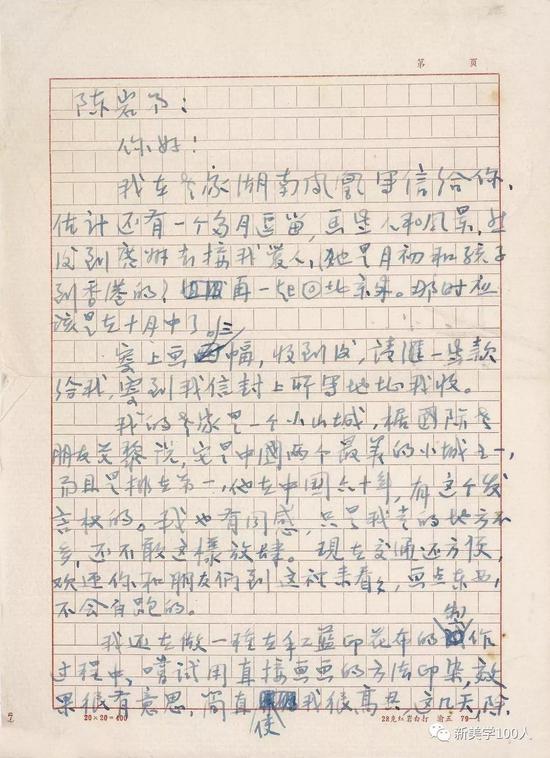 第 页
陈岩予：
你好！
我在老家湖南凤凰写信给你，
估计还有一个多月逗留，画些人和风景，然
后到广州去接我爱人，（她是月初和孩子
到香港的）再一起回北京来。那时应
该是在十月中了。
寄上画三幅，收到后，请汇一些款
给我，寄到我信封上所写地址我收。
我的老家是一个小山城，据國际老
朋友艾黎说，它是中國两个最美的小城之一，
而且是排在第一，他在中国六十年，有这个发
言权的。我也有同感，只是我走的地方不
多，还不敢这樣放肆。现在交通还方便，
欢迎你和朋友们到这裡来看看，画点东西，
不会白跑的。
我还在做一种在手工蓝印花布的制作
过程中，嚐试用直接画画的方法印染，效
果很有意思，简直使我很高兴，这几天，除
20×20=400
28克红岩白打 渝五 79-1
新美学100人